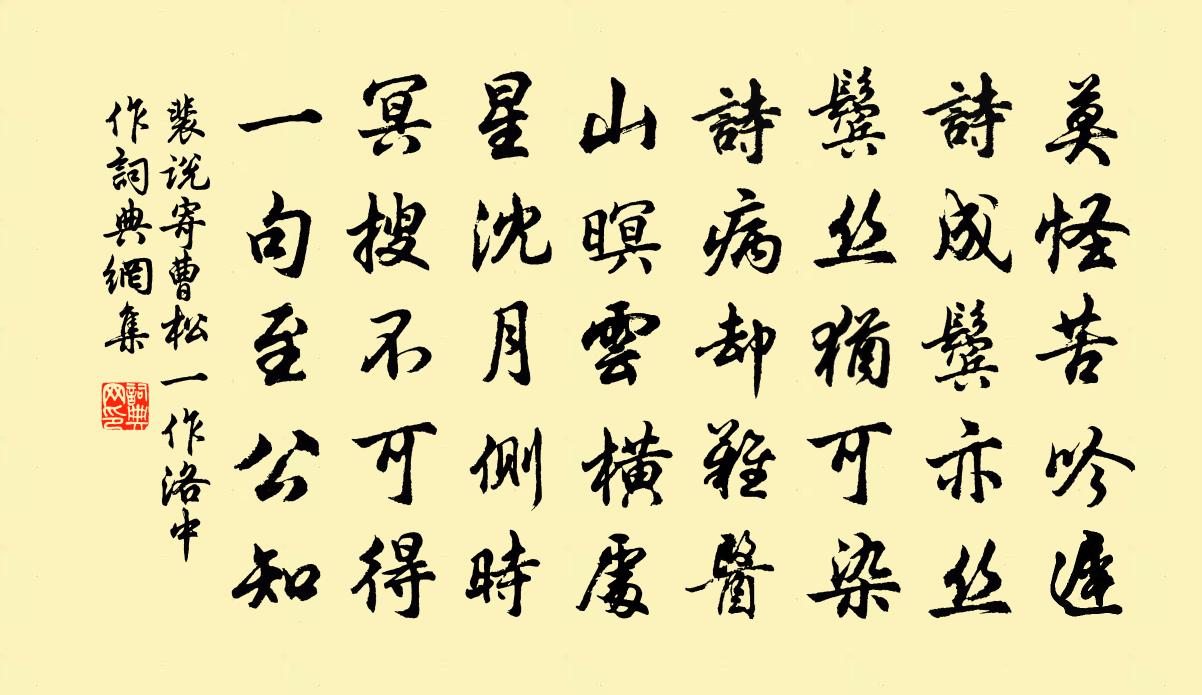 莫怪苦吟遲
詩成鬢亦丝
鬢丝猶可染
詩病却難醫
山暝雲橫處
星沈月側時
冥搜不可得
一句至公知
裴说寄曹松一作洛中
作詞典網集
詞典網印